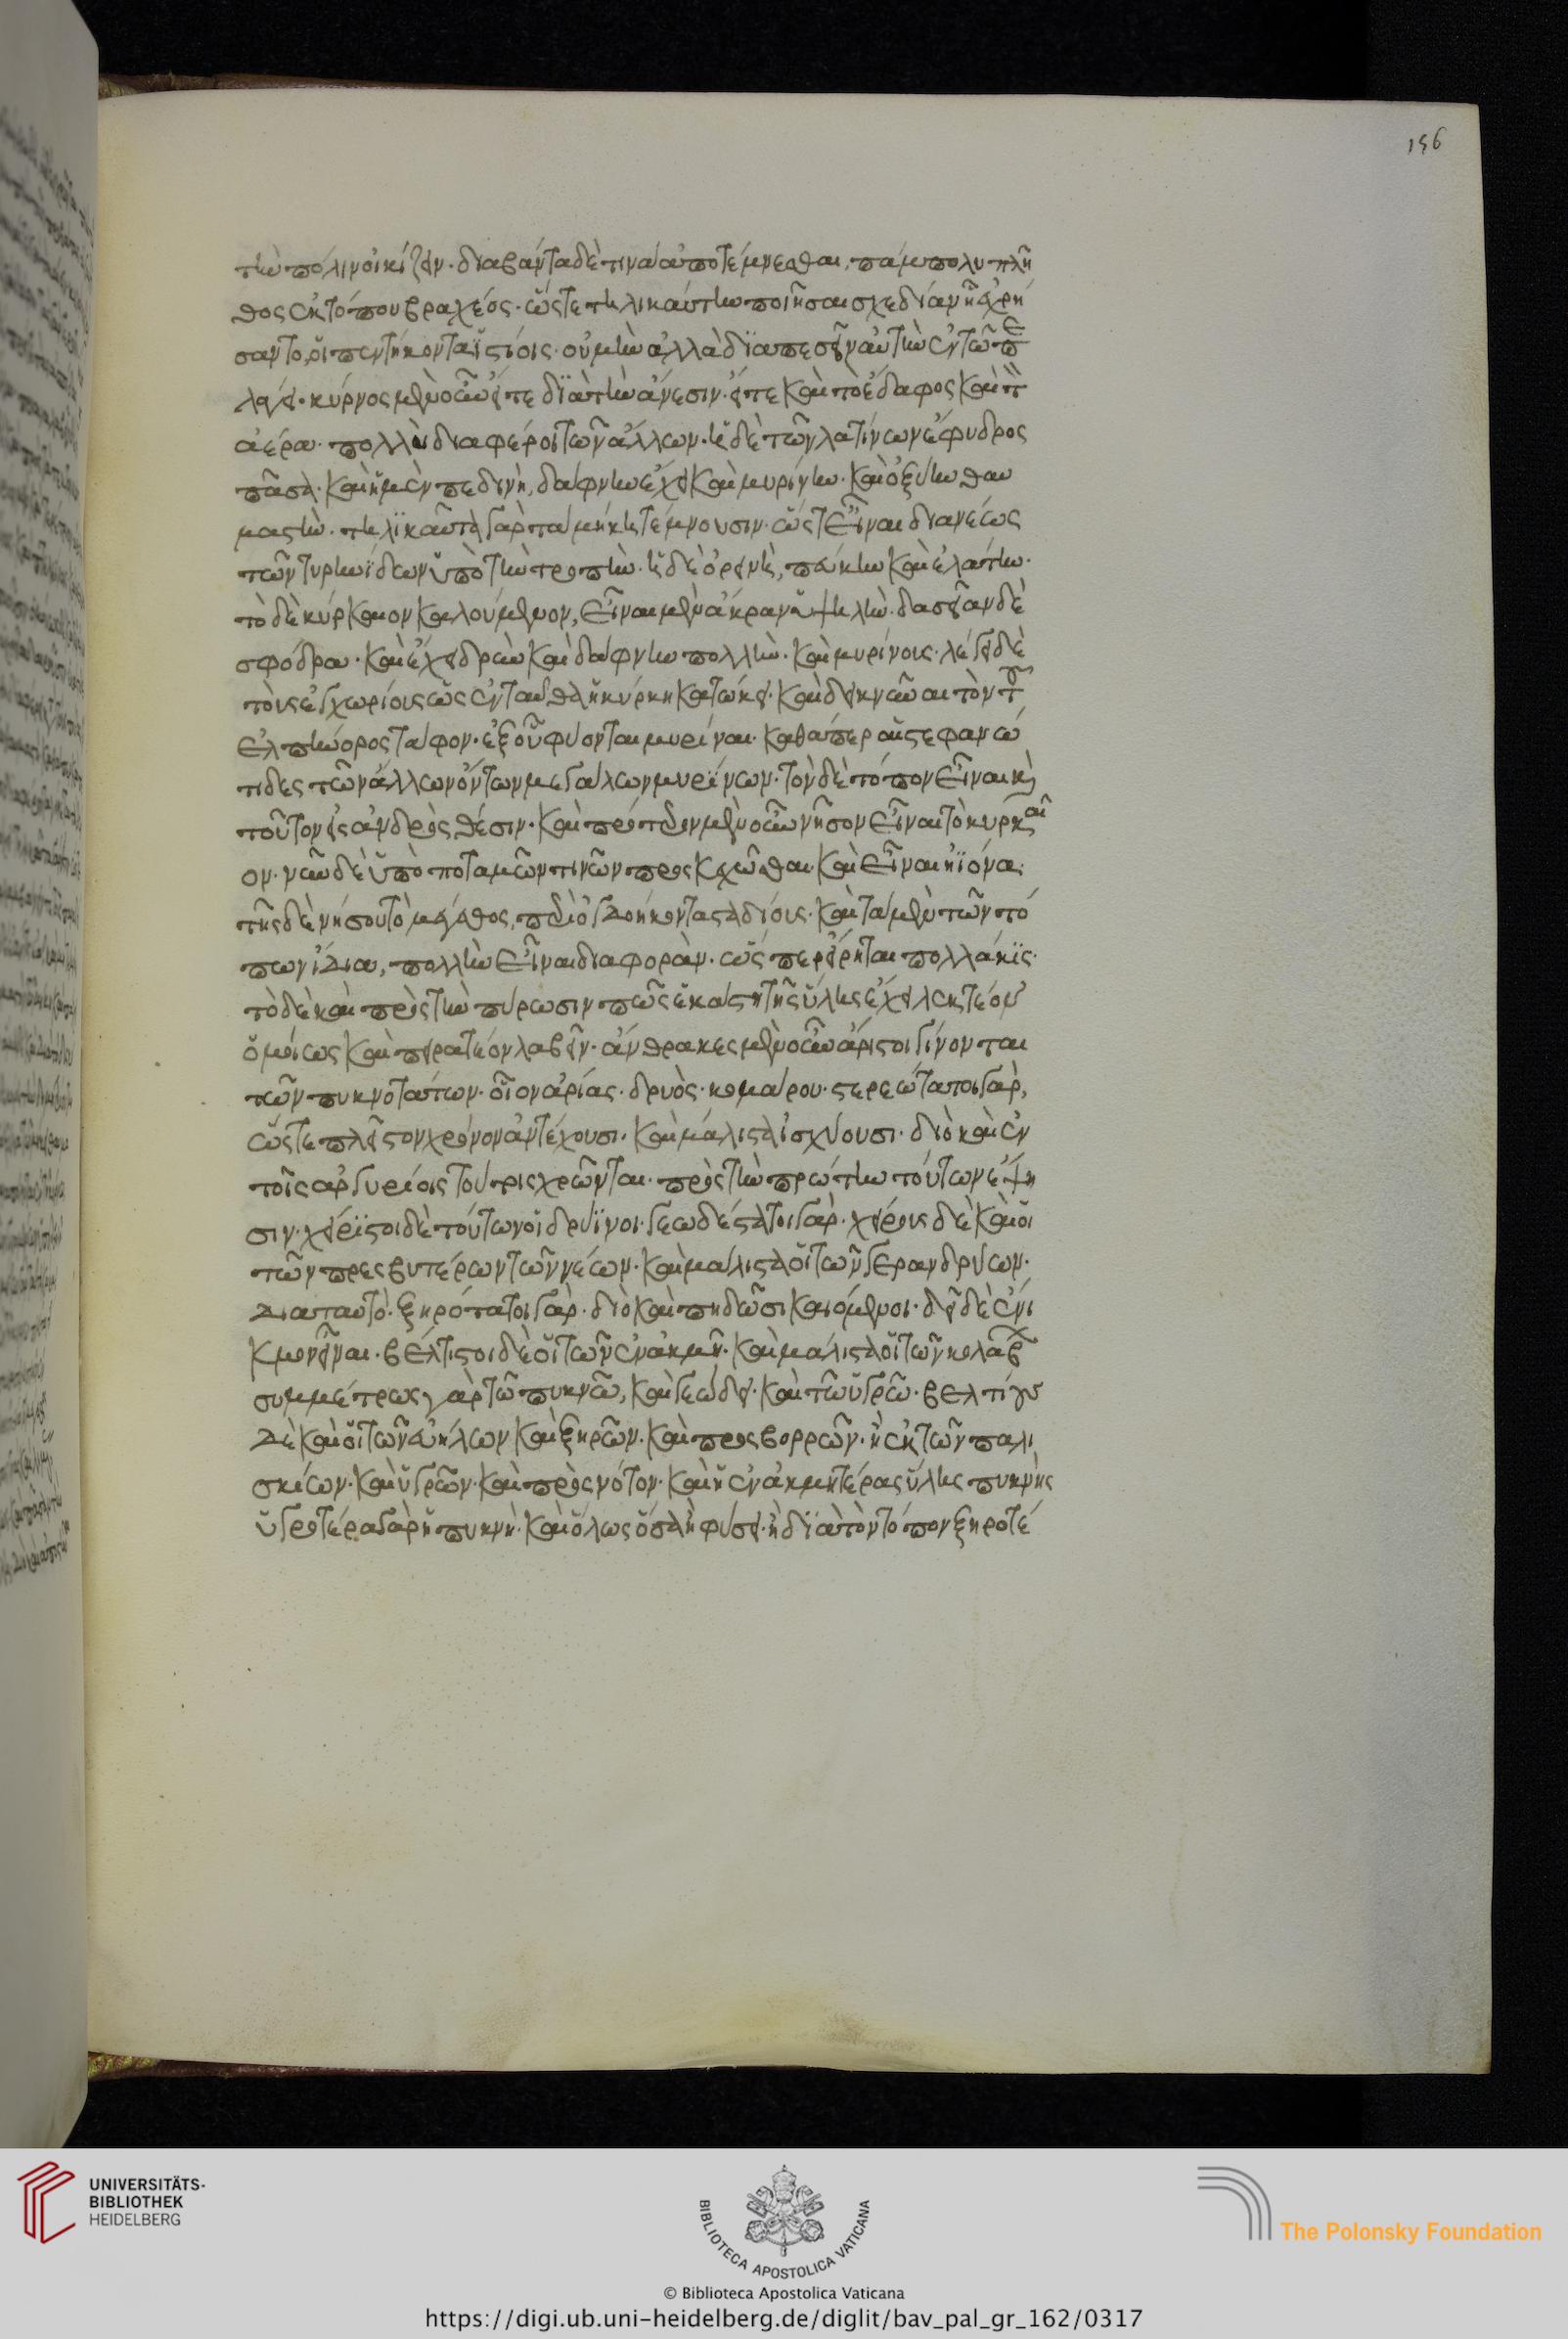 156
τὴν πόλιν οἰκίζειν. διαβάντα δέ τινα ἀποτέμνεσθαι, πάμπολυ πλῆ
θος ἐκ τόπου βραχέος. ὥστε τηλικαύτην ποιῆσαι σχεδίαν ᾗ ἐχρή
σαντο, οἱ πεντήκοντα ἱστίοις. οὐ μὴν ἀλλὰ διαπεσεῖν αὐτὴν ἐν τῷ πε
λάγει. κύρνος μὲν οὖν εἴτε διὰ τὴν ἄνεσιν. εἴτε καὶ τὸ ἔδαφος καὶ τὸν
ἀέρα. πολλῶι διαφέροι τῶν ἄλλων. ἡ δὲ τῶν λατίνων ἔφυδρος
πᾶσα. καὶ ἡ μὲν πεδινὴ, δάφνην ἔχει καὶ μυρίνην. καὶ ὀξύην θαυ
μαστήν. τηλικαῦτα γὰρ τὰ μήκη τέμνουσιν. ὥστ' εἶναι διανεῶς
τῶν τυρρηνίδων ὑπὸ τὴν τροπήν. ἡ δὲ ὀρεινὴ, πεύκην καὶ ἐλάτην.
τὸ δὲ κύρκαιον καλούμενον, εἶναι μὲν ἄκραν ὑψηλήν. δασεῖαν δὲ
σφόδρα. καὶ ἔχειν δρῦν καὶ δάφνην πολλὴν. καὶ μυρίνους. λέγει δὲ
τοὺς ἐγχωρίους ὡς ἐνταῦθα ἡ κύρκη κατώκει. καὶ δεικνύναι τὸν τοῦ
ἐλπήνορος τάφον. ἐξ οὗ φύονται μυρίναι. καθάπερ αἱ στεφανώ
τιδες τῶν ἄλλων ὄντων μεγάλων μυρίνων. τὸν δὲ τόπον εἶναι καὶ
τοῦτον εἰς ἀνδρὸς θέσιν. καὶ πρότερον μὲν οὖν νῆσον εἶναι τὸ κυρκαῖ
ον. νῦν δὲ ὑπὸ ποταμῶν τινῶν προσκεχῶσθαι. καὶ εἶναι ἠϊόνα.
τῆς δὲ νήσου τὸ μέγεθος, περὶ ὀγδοήκοντα σταδίους. καὶ τὰ μὲν τῶν τό
πων ἴδια, πολλὴν εἶναι διαφοράν. ὥσπερ εἴρηται πολλάκις.
τὸ δὲ καὶ πρὸς τὴν πύρωσιν πῶς ἑκάστη τῆς ὕλης ἔχει λεκτέον
ὁμοίως καὶ πειρατέον λαβεῖν. ἄνθρακες μὲν οὖν ἄριστοι γίνονται
τῶν πυκνοτάτων. οἷον ἀρίας. δρυὸς. κομάρου. στερεώτατοι γὰρ,
ὥστε πλεῖστον χρόνον ἀντέχουσι. καὶ μάλιστα ἰσχύουσι. διὸ καὶ ἐν
τοῖς ἀργυρίοις τούτοις χρῶνται. πρὸς τὴν πρώτην τούτων ἕψη
σιν. χείριστοι δὲ τούτων οἱ δρύϊνοι. γεωδέστατοι γάρ. χείρους δὲ καὶ οἱ
τῶν πρεσβυτέρων τῶν νέων. καὶ μάλιστα οἱ τῶν γερανδρύων.
διὰ ταυτὸ. ξηρότατοι γάρ. διὸ καὶ πηδῶσι καιόμενοι. δεῖ δὲ ἔνι
κμον εἶναι. βέλτιστοι δὲ οἱ τῶν ἐν ἀκμῇ. καὶ μάλιστα οἱ τῶν κολοβῶν
συμμέτρως γὰρ τῶ πυκνῶ, καὶ γεώδει. καὶ τῶ ὑγρῶ. βελτίους
δὲ καὶ οἱ τῶν εὐείλων καὶ ξηρῶν. καὶ προσβόρρων. ἢ ἐκ τῶν παλι
σκίων. καὶ ὑγρῶν. καὶ πρὸς νότον. καὶ ἡ ἐν ἀκμητέρας ὕλης πυκνῆς
ὑγροτέρα γὰρ ἡ πυκνή. καὶ ὅλως ὅσα ἢ φύσει. ἢ διὰ τὸν τόπον ξηροτέ
UNIVERSITÄTS-
BIBLIOTHEK
HEIDELBERG
BIBLIOTECA APOSTOLICA VATICANA
The Polonsky Foundation
© Biblioteca Apostolica Vaticana
https://digi.ub.uni-heidelberg.de/diglit/bav_pal_gr_162/0317